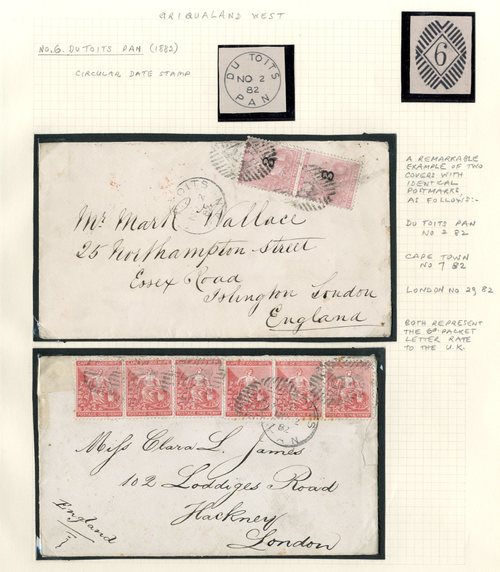 GRIQUALAND WEST
NO. 6. DU TOITS PAN (1882)
CIRCULAR DATE STAMP
DU TOITS
NO 2
82
PAN
6
A REMARKABLE
EXAMPLE OF TWO
COVERS WITH
IDENTICAL
POSTMARKS,
AS FOLLOWS:-
DU TOITS PAN
NO 2 82
CAPE TOWN
NO 7 82
LONDON NO 29 82
BOTH REPRESENT
THE 6d PACKET
LETTER RATE
TO THE U.K.
3 3
TOITS
2
Mr Mark Wallace
25 Northampton Street
Essex Road
Islington London
England
2
82
Miss Clara L. James
102 Loddiges Road
Hackney
London
England